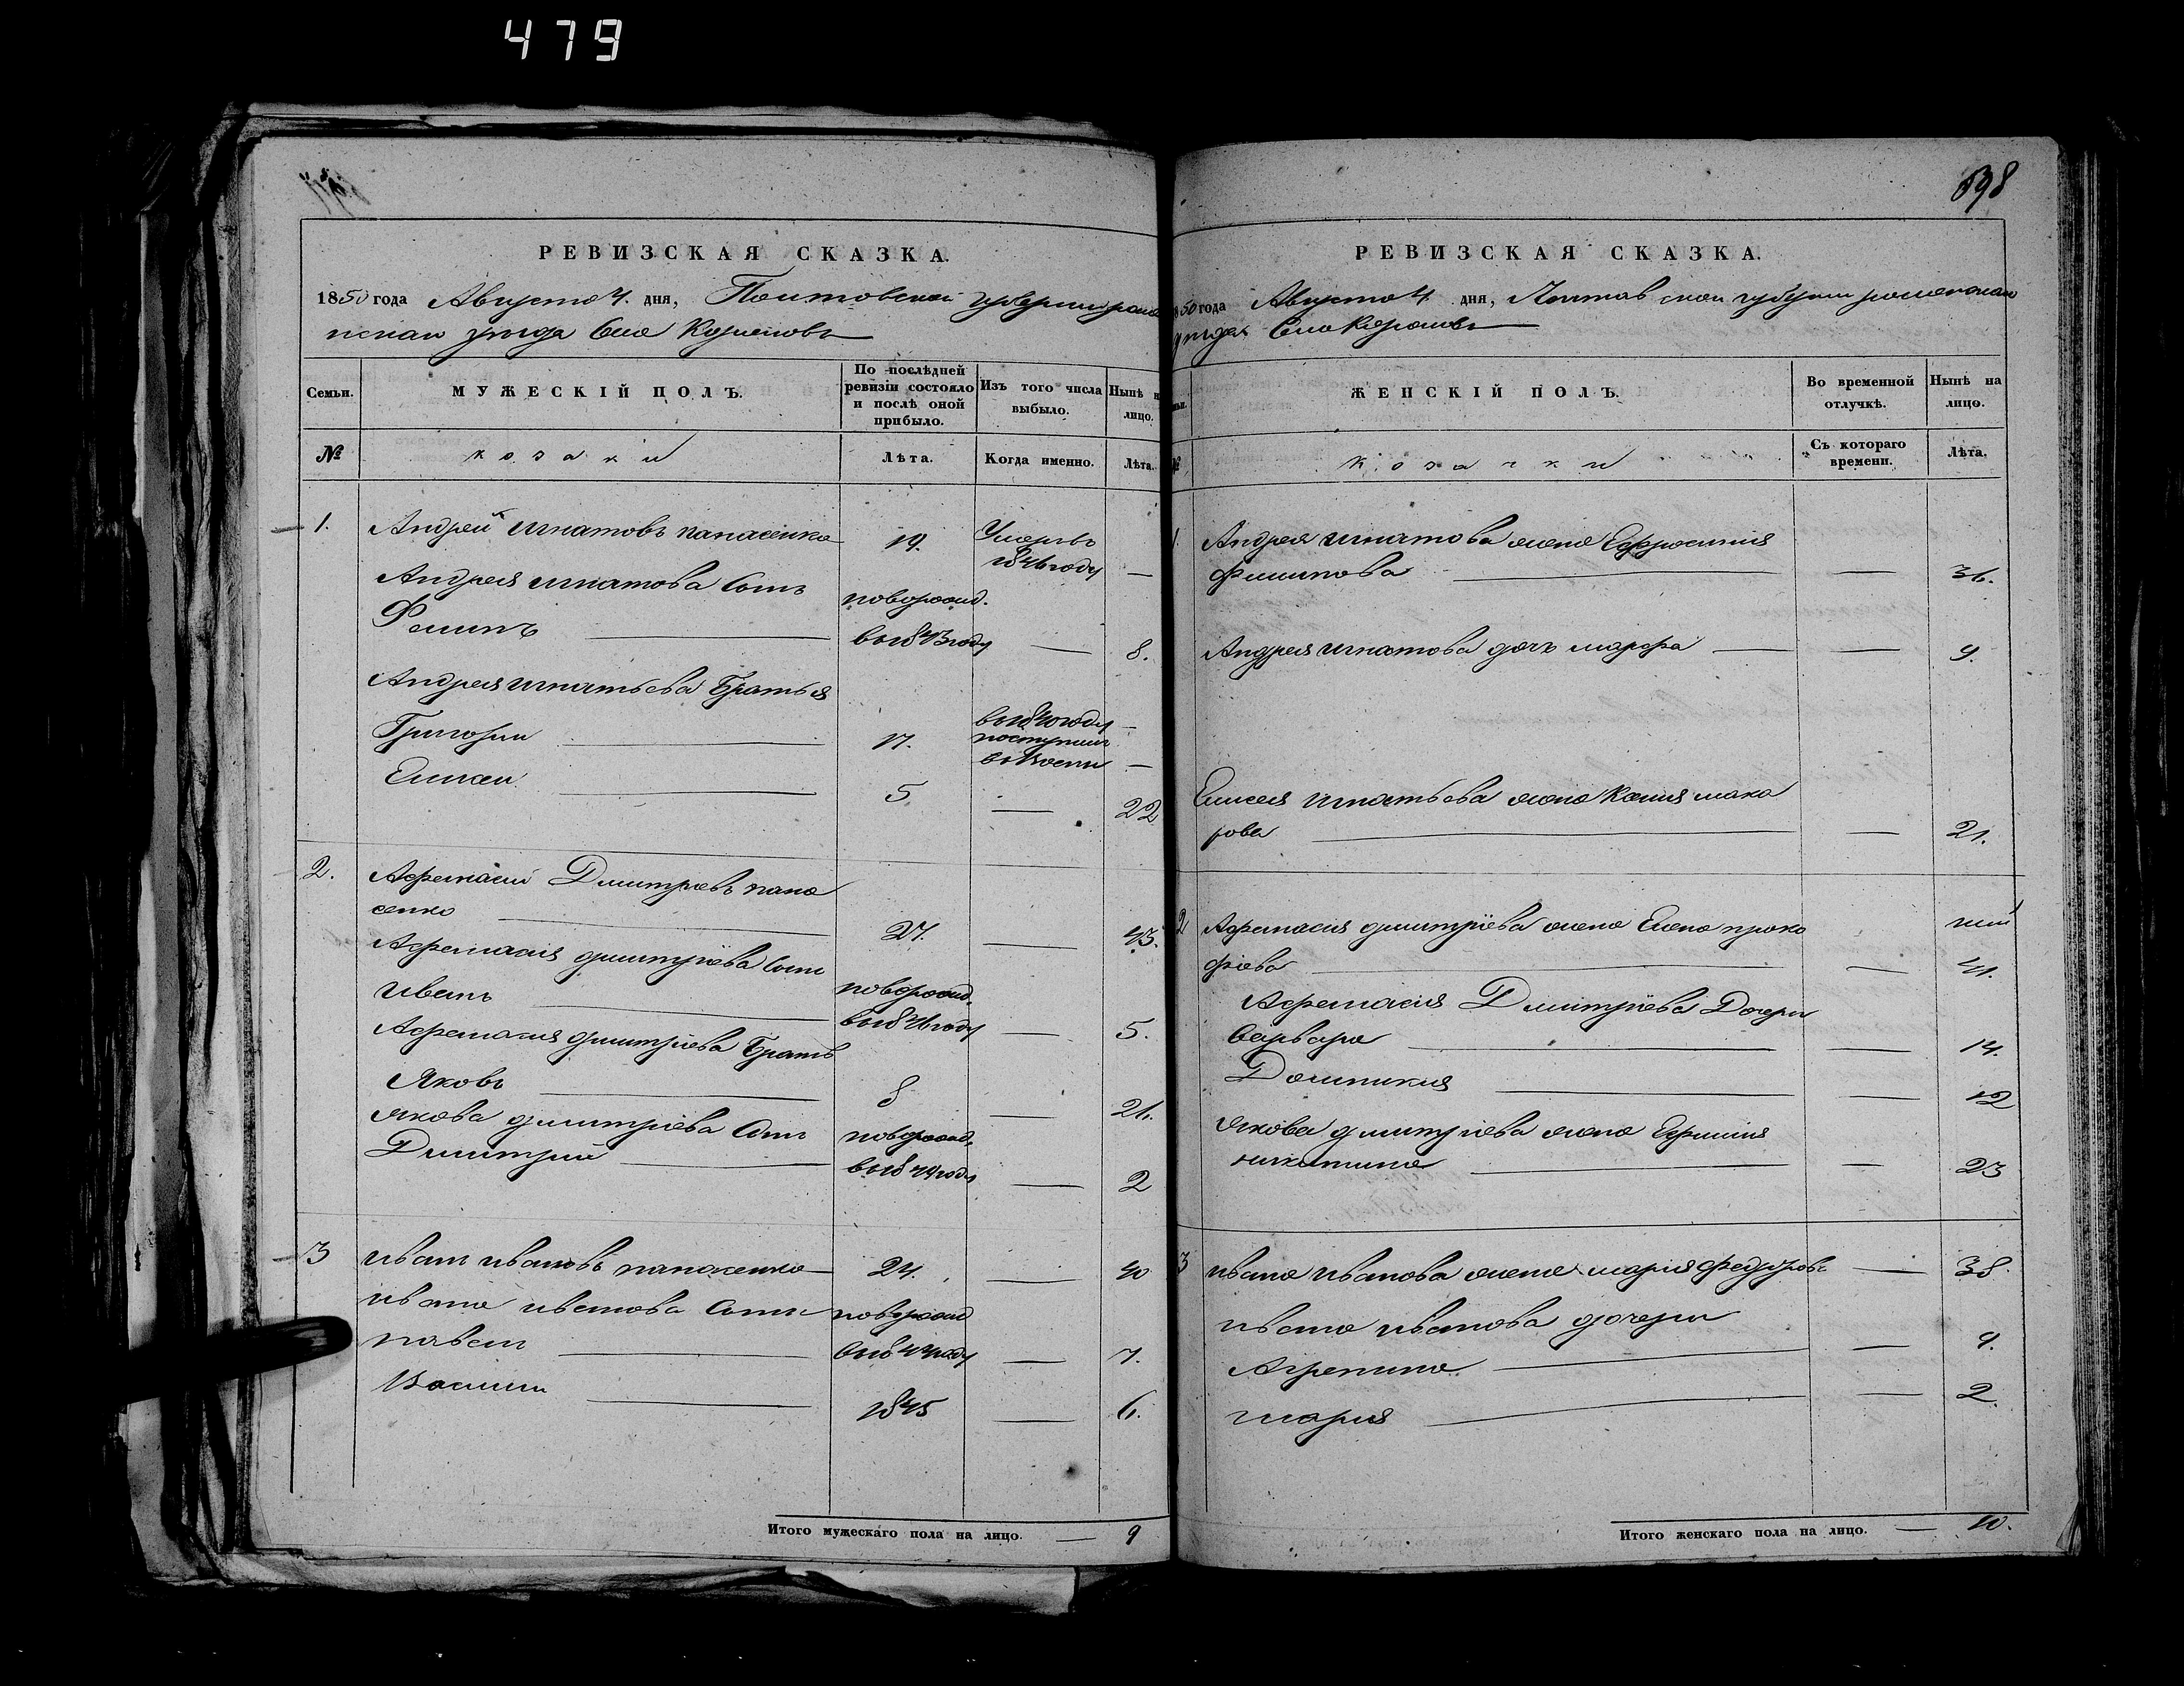 479
РЕВИЗСКАЯ СКАЗКА.
1850 года Августа 4. дня, Полтавской губернии роме
нскаи уезда Село Коровинцъ
Семьи.
МУЖЕСКІЙ ПОЛЪ.
По послѣдней
ревизіи состояло
и послѣ оной
прибыло.
Изъ того числа
выбыло.
Нынѣ н
лицо.
№
козаки
Лѣта.
Когда именно.
Лѣта.
1. Андрей Игнатовъ панасенко 19. Умеръ въ
1846 году —
Андрея Игнатова Сынъ новорожд.
Филипъ — в 1843 году — 8.
Андрея Игнатьева Братья
Григорий — 17. в 1840 году —
поступил
в —
Елисей — 5. — 22
2. Афанасий Дмитриевъ пана
сенко — 27. — 43.
Афанасия дмитріева Сынъ
Иванъ — новорожд.
в 1846 году — 5.
Афанасия дмитріева Братъ
Яковъ — 8 — 26.
Якова дмитріева Сынъ новорожд.
Дмитрий — в 1849 году — 2
3 Иван Ивановъ панасенко — 24. — 40
Ивана Иванова Сыны новорожд
павел — в 1844 году — 7.
Василий — 1845 — 6.
Итого мужескаго пола на лицо. — 9
698
РЕВИЗСКАЯ СКАЗКА.
1850 года Августа 4. дня, Полтавской губернии роменскаи
уезда Село
ЖЕНСКІЙ ПОЛЪ.
Во временной
отлучкѣ.
Нынѣ на
лицо.
№
козачки
Съ котораго
времени.
Лѣта.
1 Андрея Игнатова жена Ефросиния
Филипова — — 36.
Андрея Игнатова дочь марфа — — 9.
Елисея Игнатьева жена Ксения мака
рова — — 21.
2 Афанасия дмитріева жена Елена проко
фіева — — 41.
Афанасия Дмитріева Дочери
Варвара — — 14.
Домникия — — 12
Якова дмитріева жена Ефимия
никитина — — 23
3 Ивана Иванова жена мария Федорова — 38.
Ивана Иванова дочери
Агрепина — — 9.
мария — — 2.
Итого женскаго пола на лицо. — 10.